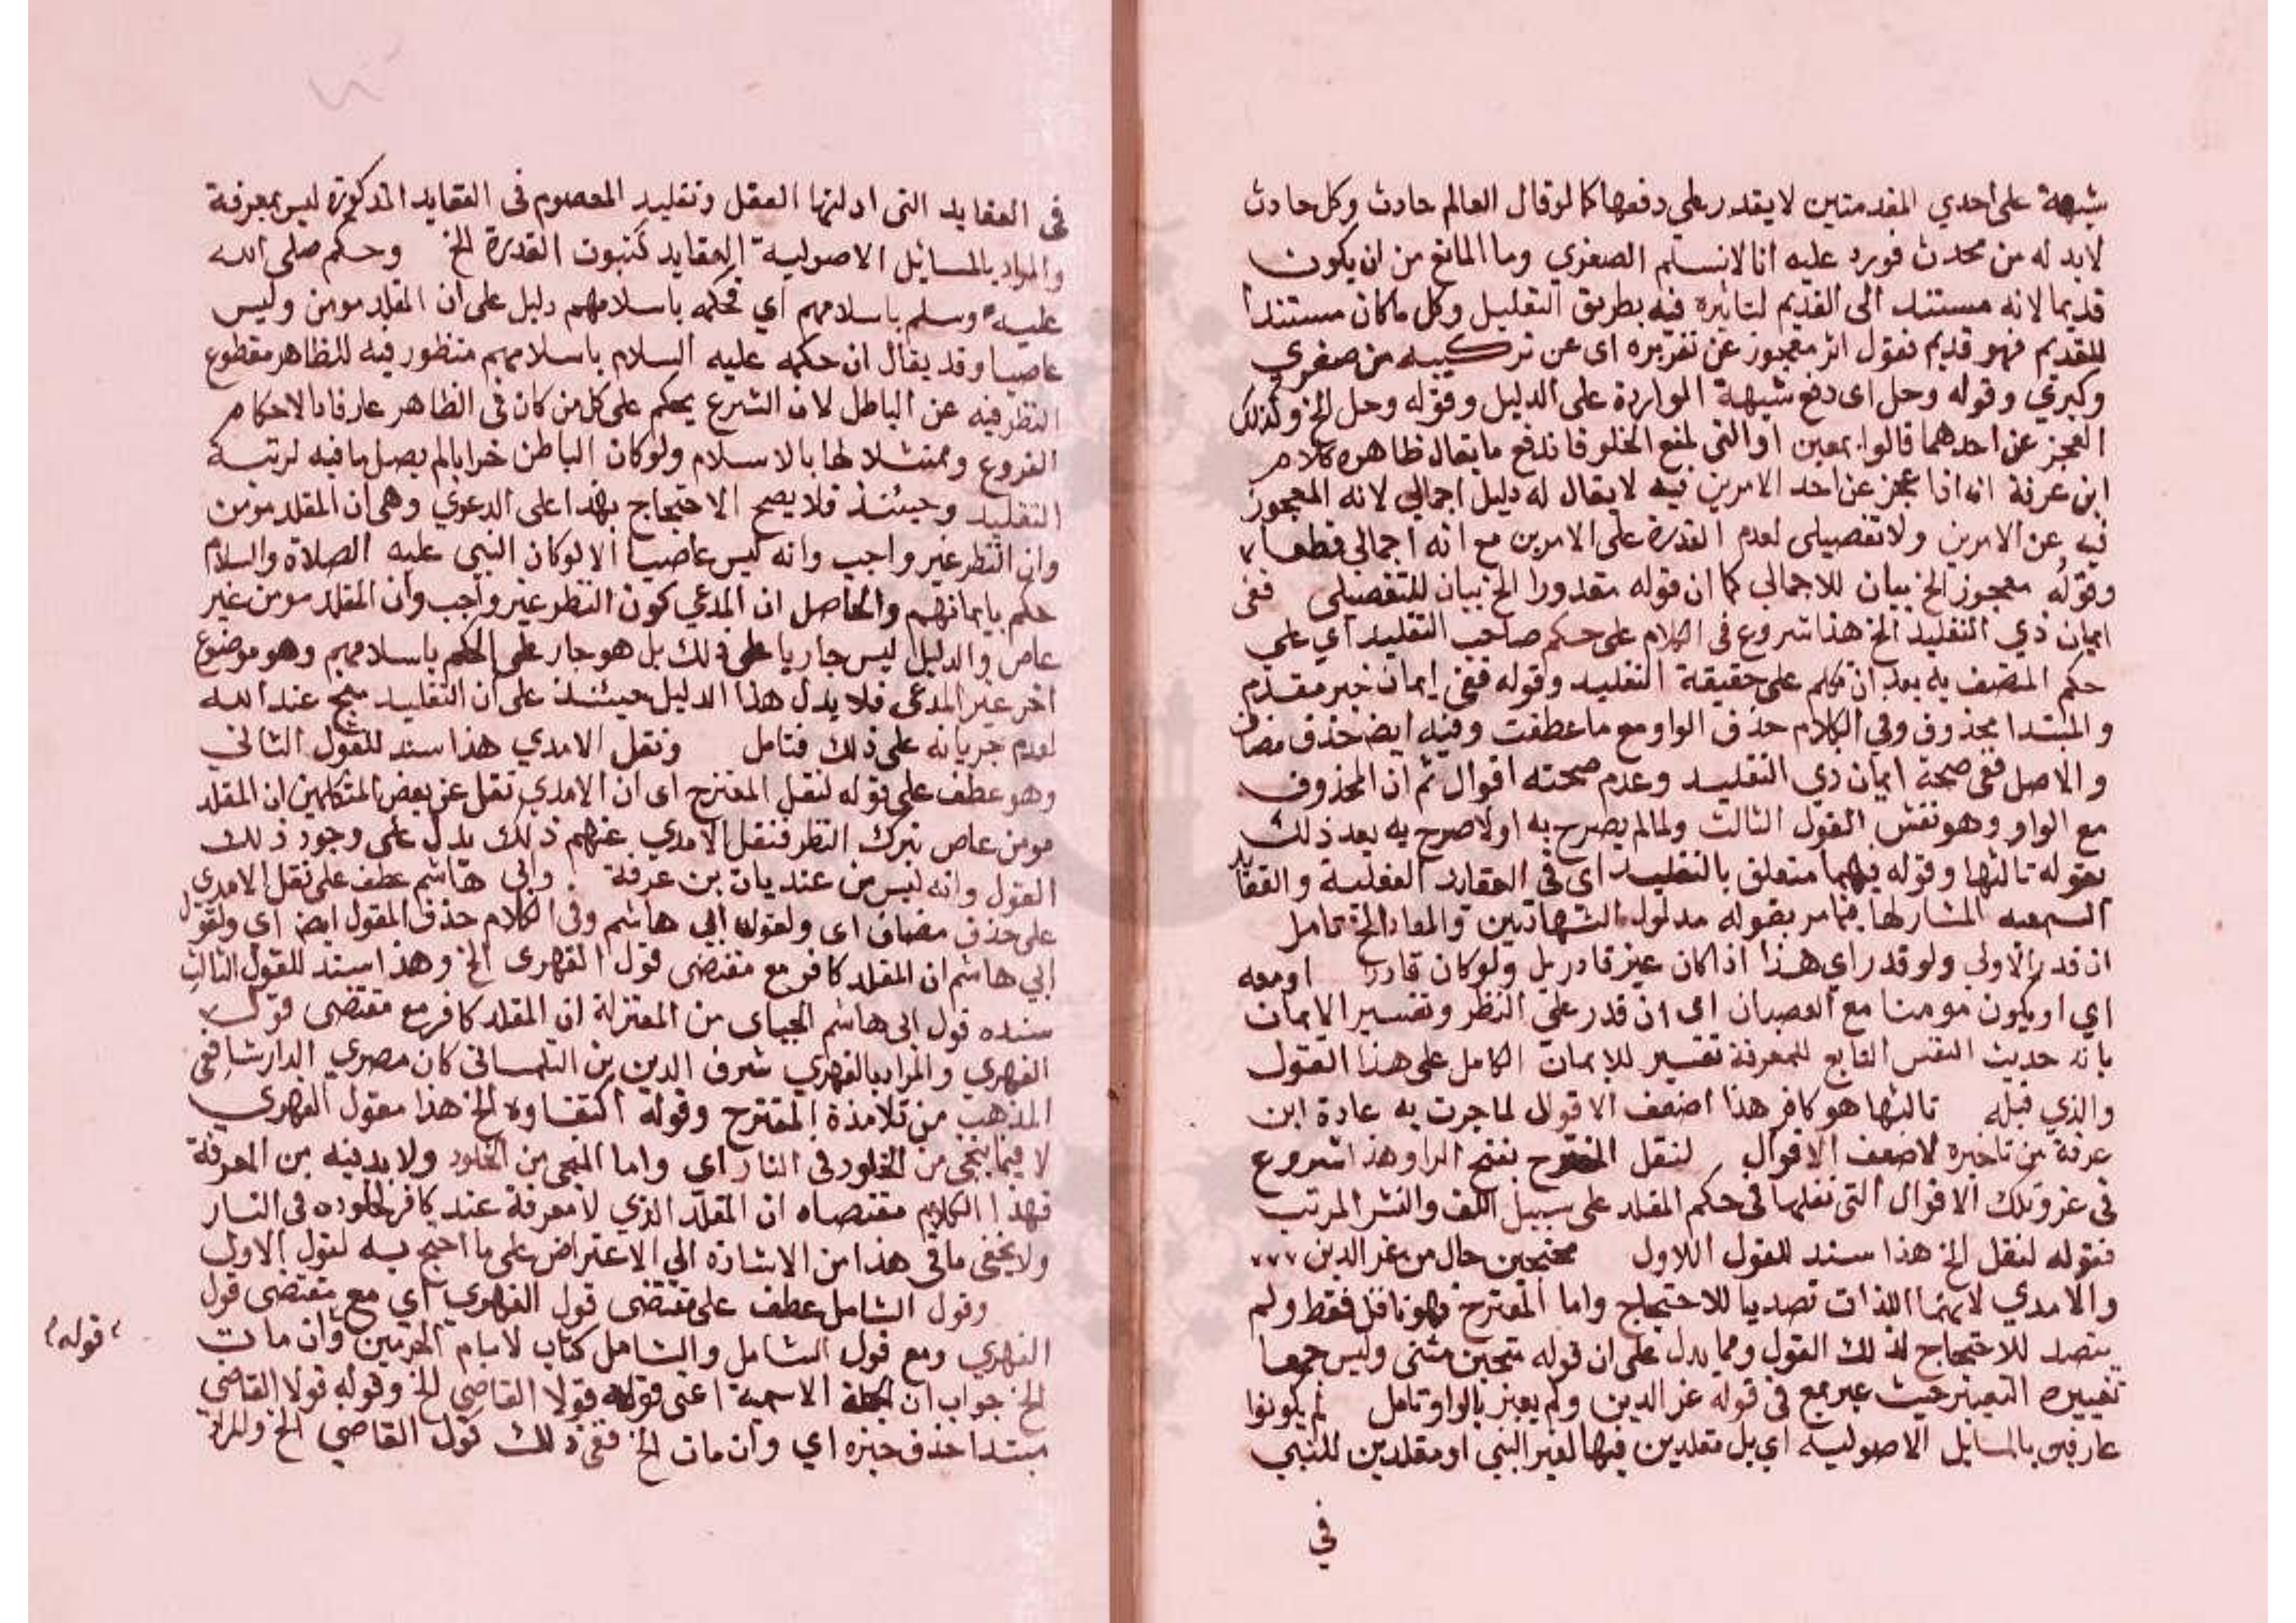 شبهة على احدي المقدمتين لا يقدر علي دفعها كما لو قال العالم حادث وكل حادث
لابد له من محدث فورد عليه انا لا نسلم الصغري وما المانع من ان يكون
قديما لانه مستند الى القديم لتاثيره فيه بطريق التعليل وكل ما كان مستندا
للقديم فهو قديم فقول اثر معجوز عن تقريره اى عن تركيبه من صغري
وكبري وقوله وحل اى دفع شبهة الواردة على الدليل وقوله وحل الخ وكذلك
العجز عن احدهما قالوا بمعين او التي لمنع الخلو فاندفع ما يقال ظاهره كلام
ابن عرفة انه اذا عجز عن احد الامرين فيه لا يقال له دليل اجمالي لانه المعجوز
فيه عن الامرين ولا تفصيلى لعدم القدرة على الامرين مع انه اجمالى قطعا
وقوله معجوز الخ بيان للاجمالي كما ان قوله مقدورا الخ بيان للتفصيلى ففى
ايمان ذي التقليد الخ هذا شروع فى الكلام على حكم صاحب التقليد اي على
حكم المتصف به بعد ان تكلم على حقيقة التقليد وقوله ففى ايمان خبر مقدم
والمبتدا محذوف وفي الكلام حذف الواو مع ما عطفت وفيه ايض حذف مضاف
والاصل ففى صحة ايمان ذي التقليد وعدم صحته اقوال ثم ان المحذوف
مع الواو وهو نفس القول الثالث ولما لم يصرح به اولا صرح به بعد ذلك
بقوله ثالثها وقوله فيهما متعلق بالتقليد اى فى العقايد العقلية والعقايد
السمعيه المشار لها فيما مر بقوله مدلول الشهادتين والمعاد الخ تامل
ان قدر الاولى ولو قدر اي هذا اذا كان غير قادر بل ولو كان قادرا او معه
اي او يكون مومنا مع العصيان اى ان قدر على النظر وتفسير الايمان
بانه حديث النفس التابع للمعرفة تفسير للايمان الكامل على هذا القول
والذي قبله ثالثها هو كافر هذا اضعف الاقوال لما جرت به عادة ابن
عرفة من تاخيره لاضعف الاقوال لنقل المقترح بفتح الرا وهذا شروع
فى عزو تلك الاقوال التى نقلها فى حكم المقلد على سبيل اللف والنشر المرتب
فقوله لنقل الخ هذا سند للقول الاول محتجين حال من عز الدين
والامدي لانهما اللذات تصديا للاحتجاج واما المقترح فهو ناقل فقط ولم
يتصد للاحتجاج لذلك القول ومما يدل على ان قوله محتجين مثنى وليس جمعا
تغييره التعبير حيث عبر بمع فى قوله عز الدين ولم يعبر بالواو تامل لم يكونوا
عارفين بالمسايل الاصولية اي بل مقلدين فيها لغير النبي او مقلدين للنبي
في
فى العقايد التى ادلتها العقل وتقليد المعصوم فى العقايد المذكورة ليس بمعرفة
والمراد بالمسايل الاصولية العقايد كثبوت القدرة الخ وحكم صلى الله
عليه وسلم باسلامهم اي فحكمه باسلامهم دليل على ان المقلد مومن وليس
عاصيا وقد يقال ان حكمه عليه السلام باسلامهم منظور فيه للظاهر مقطوع
النظر فيه عن الباطل لان الشرع يحكم على كل من كان فى الظاهر عارفا بالاحكام
الفروع وممتثلا لها بالاسلام ولو كان الباطن خرابا لم يصل ما فيه لرتبة
التقليد وحينئذ فلا يصح الاحتجاج بهذا على الدعوي وهى ان المقلد مومن
وان النظر غير واجب وانه ليس عاصيا الا لو كان النبي عليه الصلاة والسلام
حكم بايمانهم والحاصل ان المدعي كون النظر غير واجب وان المقلد مومن غير
عاص والدليل ليس جاريا على ذلك بل هو جار على الحكم باسلامهم وهو موضوع
اخر غير المدعى فلا يدل هذا الدليل حينئذ على ان التقليد منج عند الله
لعدم جريانه على ذلك فتامل ونقل الامدي هذا سند للقول الثانى
وهو عطف على قوله لنقل المقترح اى ان الامدي نقل عن بعض المتكلمين ان المقلد
مومن عاص بترك النظر فنقل الامدي عنهم ذلك يدل على وجود ذلك
القول وانه ليس من عنديات بن عرفة وابى هاشم عطف على نقل الامدي
على حذف مضاف اى ولقول ابي هاشم وفى الكلام حذف المقول ايض اى ولقول
ابي هاشم ان المقلد كافر مع مقتضى قول الفهرى الخ وهذا سند للقول الثالث
سنده قول ابى هاشم الجباى من المعتزلة ان المقلد كافر مع مقتضى قول
الفهري والمراد بالفهري شرف الدين بن التلمسانى كان مصري الدار شافعى
المذهب من تلامذة المقترح وقوله اكتفاوه الخ هذا مقول الفهري
لا فيما ينجى من الخلود فى النار اى واما المنجى من الخلود ولا بد فيه من المعرفة
فهذا الكلام مقتضاه ان المقلد الذي لا معرفة عند كافر لخلوده فى النار
ولا يخفى ما فى هذا من الاشارة الى الاعتراض على ما احتج به لقول الاول
وقول الشامل عطف على مقتضى قول الفهري اي مع مقتضى قول
الفهري ومع قول الشامل والشامل كتاب لامام الحرمين وان مات
الخ جواب ان الجملة الاسمية اعنى قوله قولا القاضي الخ وقوله قولا القاضي
مبتدا حذف خبره اي وان مات الخ ففى ذلك قول القاضي الخ والمراد
قوله